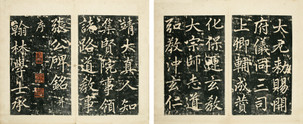 大元敕賜開
府儀同三司
上卿輔成贊
化保運玄教
大宗師志道
弘教沖玄仁
靖大真人知
集賢院事領
諸路道教事
張公碑銘
翰林學士承